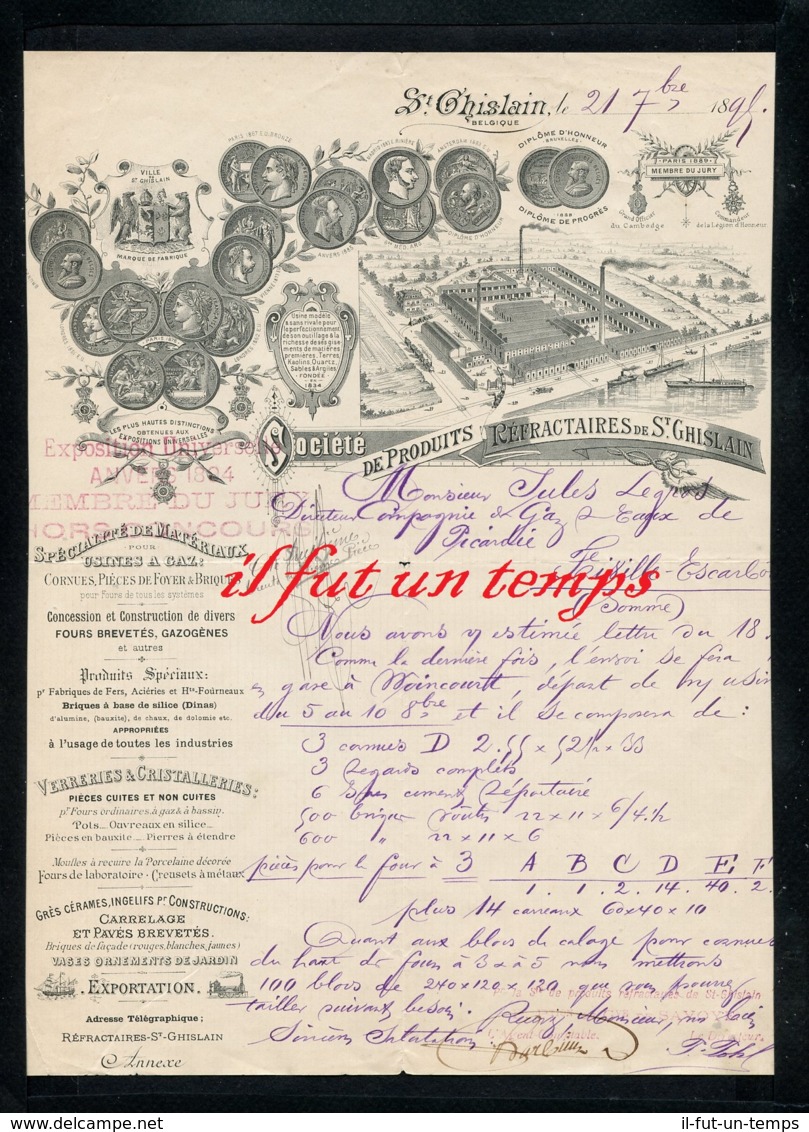 St. Ghislain, le 21 7bre 1895.
BELGIQUE
VILLE
DE
ST GHISLAIN
MARQUE DE FABRIQUE
DIPLÔME D'HONNEUR
(BRUXELLES)
1888
DIPLÔME DE PROGRÈS
PARIS 1889
MEMBRE DU JURY
Grand Officier
du Cambodge
Commandeur
de la Légion d'Honneur
ANVERS 1885
DIPLÔME D'HONNEUR
Usine modèle
& sans rivale pour
le perfectionnement
de son outillage & la
richesse de ses gise
ments de matières
premières, Terres,
Kaolins, Quartz,
Sables & Argiles
FONDÉE
EN
1834
LES PLUS HAUTES DISTINCTIONS
OBTENUES AUX
EXPOSITIONS UNIVERSELLES
Société
DE PRODUITS RÉFRACTAIRES DE ST GHISLAIN
Exposition Universelle
ANVERS 1894
MEMBRE DU JURY
HORS CONCOURS
Monsieur Jules Legros
Directeur Compagnie de Gaz & Eaux de
Picardie
Friville-Escarbo
(Somme)
il fut un temps
SPÉCIALITÉ DE MATÉRIAUX
POUR
USINES A GAZ:
CORNUES, PIÈCES DE FOYER & BRIQUES
pour Fours de tous les systèmes
Concession et Construction de divers
FOURS BREVETÉS, GAZOGÈNES
et autres
Produits Spéciaux:
pr Fabriques de Fers, Aciéries et Hts-Fourneaux
Briques à base de silice (Dinas)
d'alumine, (bauxite), de chaux, de dolomie etc.
APPROPRIÉES
à l'usage de toutes les industries
VERRERIES & CRISTALLERIES:
PIÈCES CUITES ET NON CUITES
pr Fours ordinaires, à gaz & à bassin.
Pots... Ouvreaux en silice...
Pièces en bauxite... Pierres à étendre
Moufles à recuire la Porcelaine décorée
Fours de laboratoire - Creusets à métaux
GRÈS CÉRAMES, INGELIFS Pr CONSTRUCTIONS:
CARRELAGE
ET PAVÉS BREVETÉS.
Briques de façade (rouges, blanches, jaunes)
VASES ORNEMENTS DE JARDIN
EXPORTATION.
Adresse Télégraphique:
RÉFRACTAIRES-ST-GHISLAIN
Annexe
Nous avons vy estimée lettre du 18.
Comme la dernière fois, l'envoi se fera
en gare à Woincourt, départ de n/ usin
du 5 au 10 8bre et il se composera de:
3 cornues D 2.55 x 52 1/2 x 33
3 regards complets
6 ciment Réfractaire
500 briques voûtes 22 x 11 x 6/4 1/2
600 " 22 x 11 x 6
pièces pour le four à 3 A B C D E F
1. 1. 2. 14. 40. 2.
plus 14 carreaux 60x40x10
Quant aux blocs de calage pour cornues
du haut de fours à 3 & à 5 nous mettrons
100 blocs de 240 x 120 x 120 que vous pourrez
tailler suivant besoin. Recevez Monsieur, nos bien
Sincères Salutations
de produits réfractaires de St-Ghislain
il-fut-un-temps